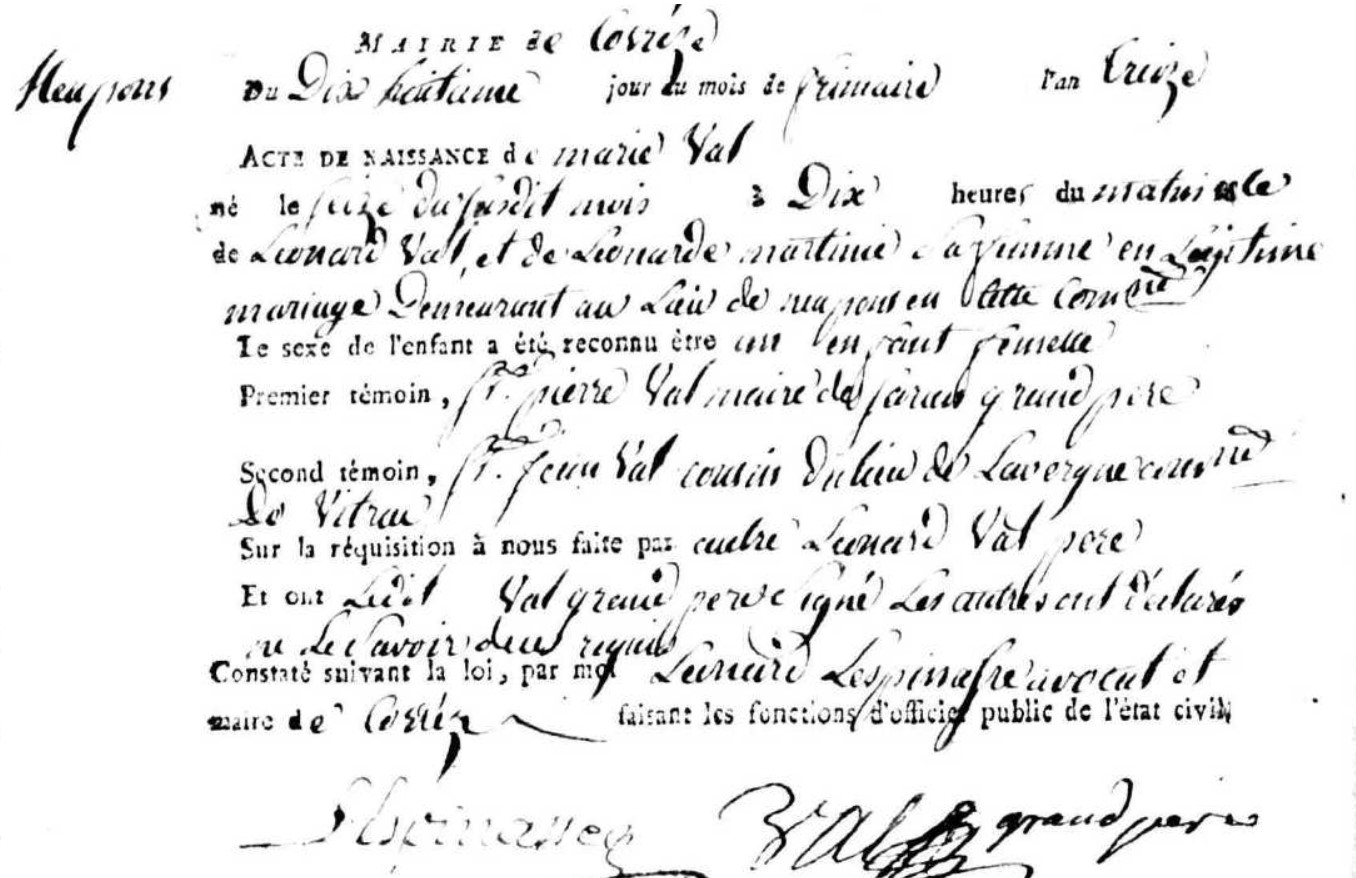 MAIRIE de Corrèze
Neupons
Du Dix huitieme jour du mois de frimaire l'an treize
ACTE DE NAISSANCE de marie Val
né le seize du susdit mois à Dix heures du matin
de Léonard Val, et de Léonarde martinie Sa femme en Légitime
mariage Demeurant au Lieu de neupons en cette Comm.ne
Le sexe de l'enfant a été reconnu être un enfant femelle
Premier témoin, Sr. pierre Val maire de grand pere
Second témoin, Sr. Jean Val cousin du lieu de Lavergne comm.ne
de Vitrac
Sur la réquisition à nous faite par autre Léonard Val pere
Et ont Ledit Val grand pere Signé Les autres ont déclarés
ne Le Savoir de ce requis
Constaté suivant la loi, par moi Léonard Lespinasse avocat et
maire de Corrèze faisant les fonctions d'officier public de l'état civil
Lespinasse Val grand pere